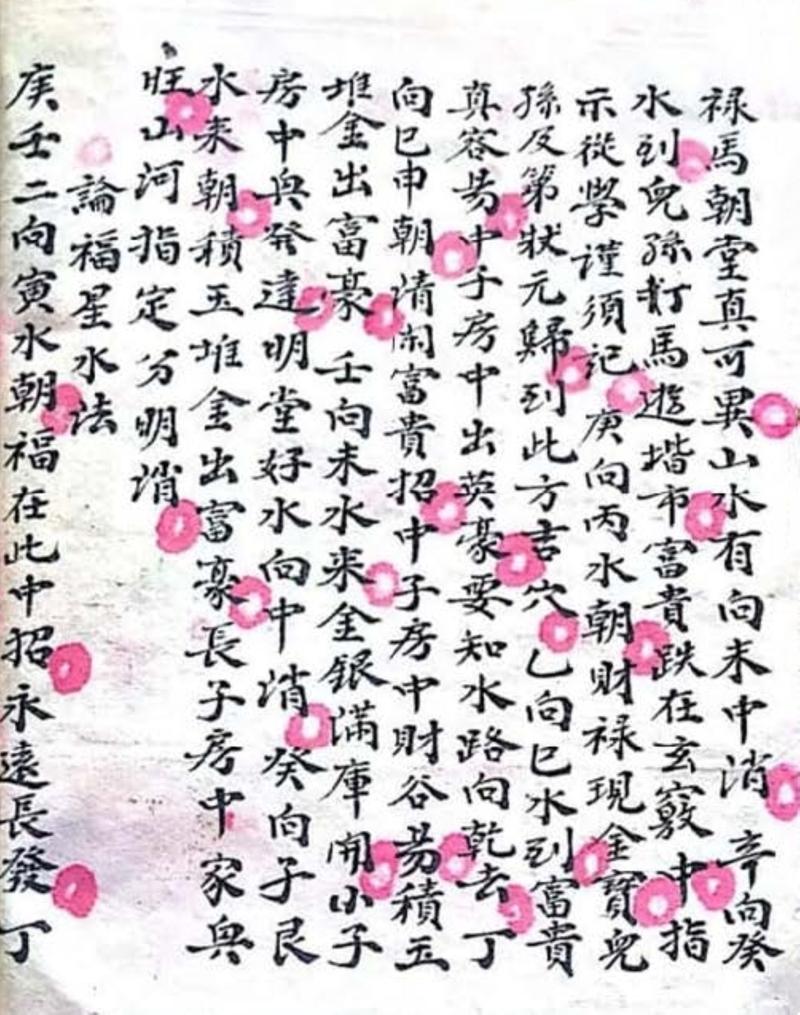 禄馬朝堂真可異山水有向未中消 辛向癸
水到兒孫打馬遊堦市富貴跌在玄竅中指
示從學謹須記 庚向丙水朝財禄現金寶兒
孫及第狀元歸到此方吉穴 乙向巳水到富貴
真容昜中子房中出英豪要知水路向乾去 丁
向巳申朝清閑富貴招中子房中財谷昜積玉
堆金出富豪 壬向未水来金銀滿庫開小子
房中興發達明堂好水向中消 癸向子艮
水来朝積玉堆金出富豪長子房中家興
旺山河指定分明消
論福星水法
庚壬二向寅水朝福在此中招永遠長發 丁